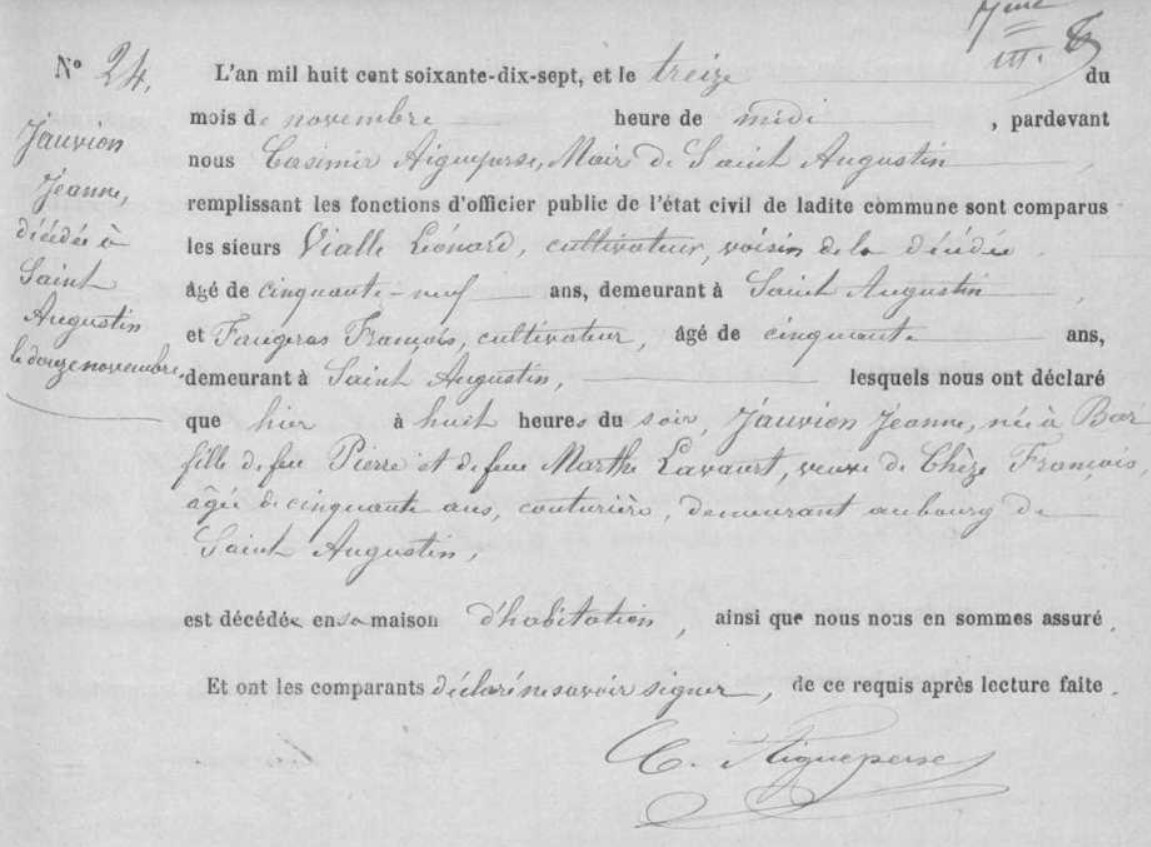 N° 24.
Jauvion
Jeanne,
décédée à
Saint
Augustin
le douze novembre.
L'an mil huit cent soixante-dix-sept, et le treize du
mois de novembre heure de midi , pardevant
nous Casimir Aigueperse, Maire de Saint Augustin ,
remplissant les fonctions d'officier public de l'état civil de ladite commune sont comparus
les sieurs Vialle Léonard, cultivateur, voisin de la décédée
âgé de cinquante-neuf ans, demeurant à Saint Augustin ,
et Faugeras François, cultivateur, âgé de cinquante ans,
demeurant à Saint Augustin, lesquels nous ont déclaré
que hier à huit heures du soir, Jauvion Jeanne, née à Bar
fille de feu Pierre et de feue Marthe Lavaurt, veuve de Chèze François,
âgée de cinquante ans, couturière, demeurant au bourg de
Saint Augustin,
est décédée en sa maison d'habitation , ainsi que nous nous en sommes assuré .
Et ont les comparants déclaré ne savoir signer , de ce requis après lecture faite .
C. Aigueperse